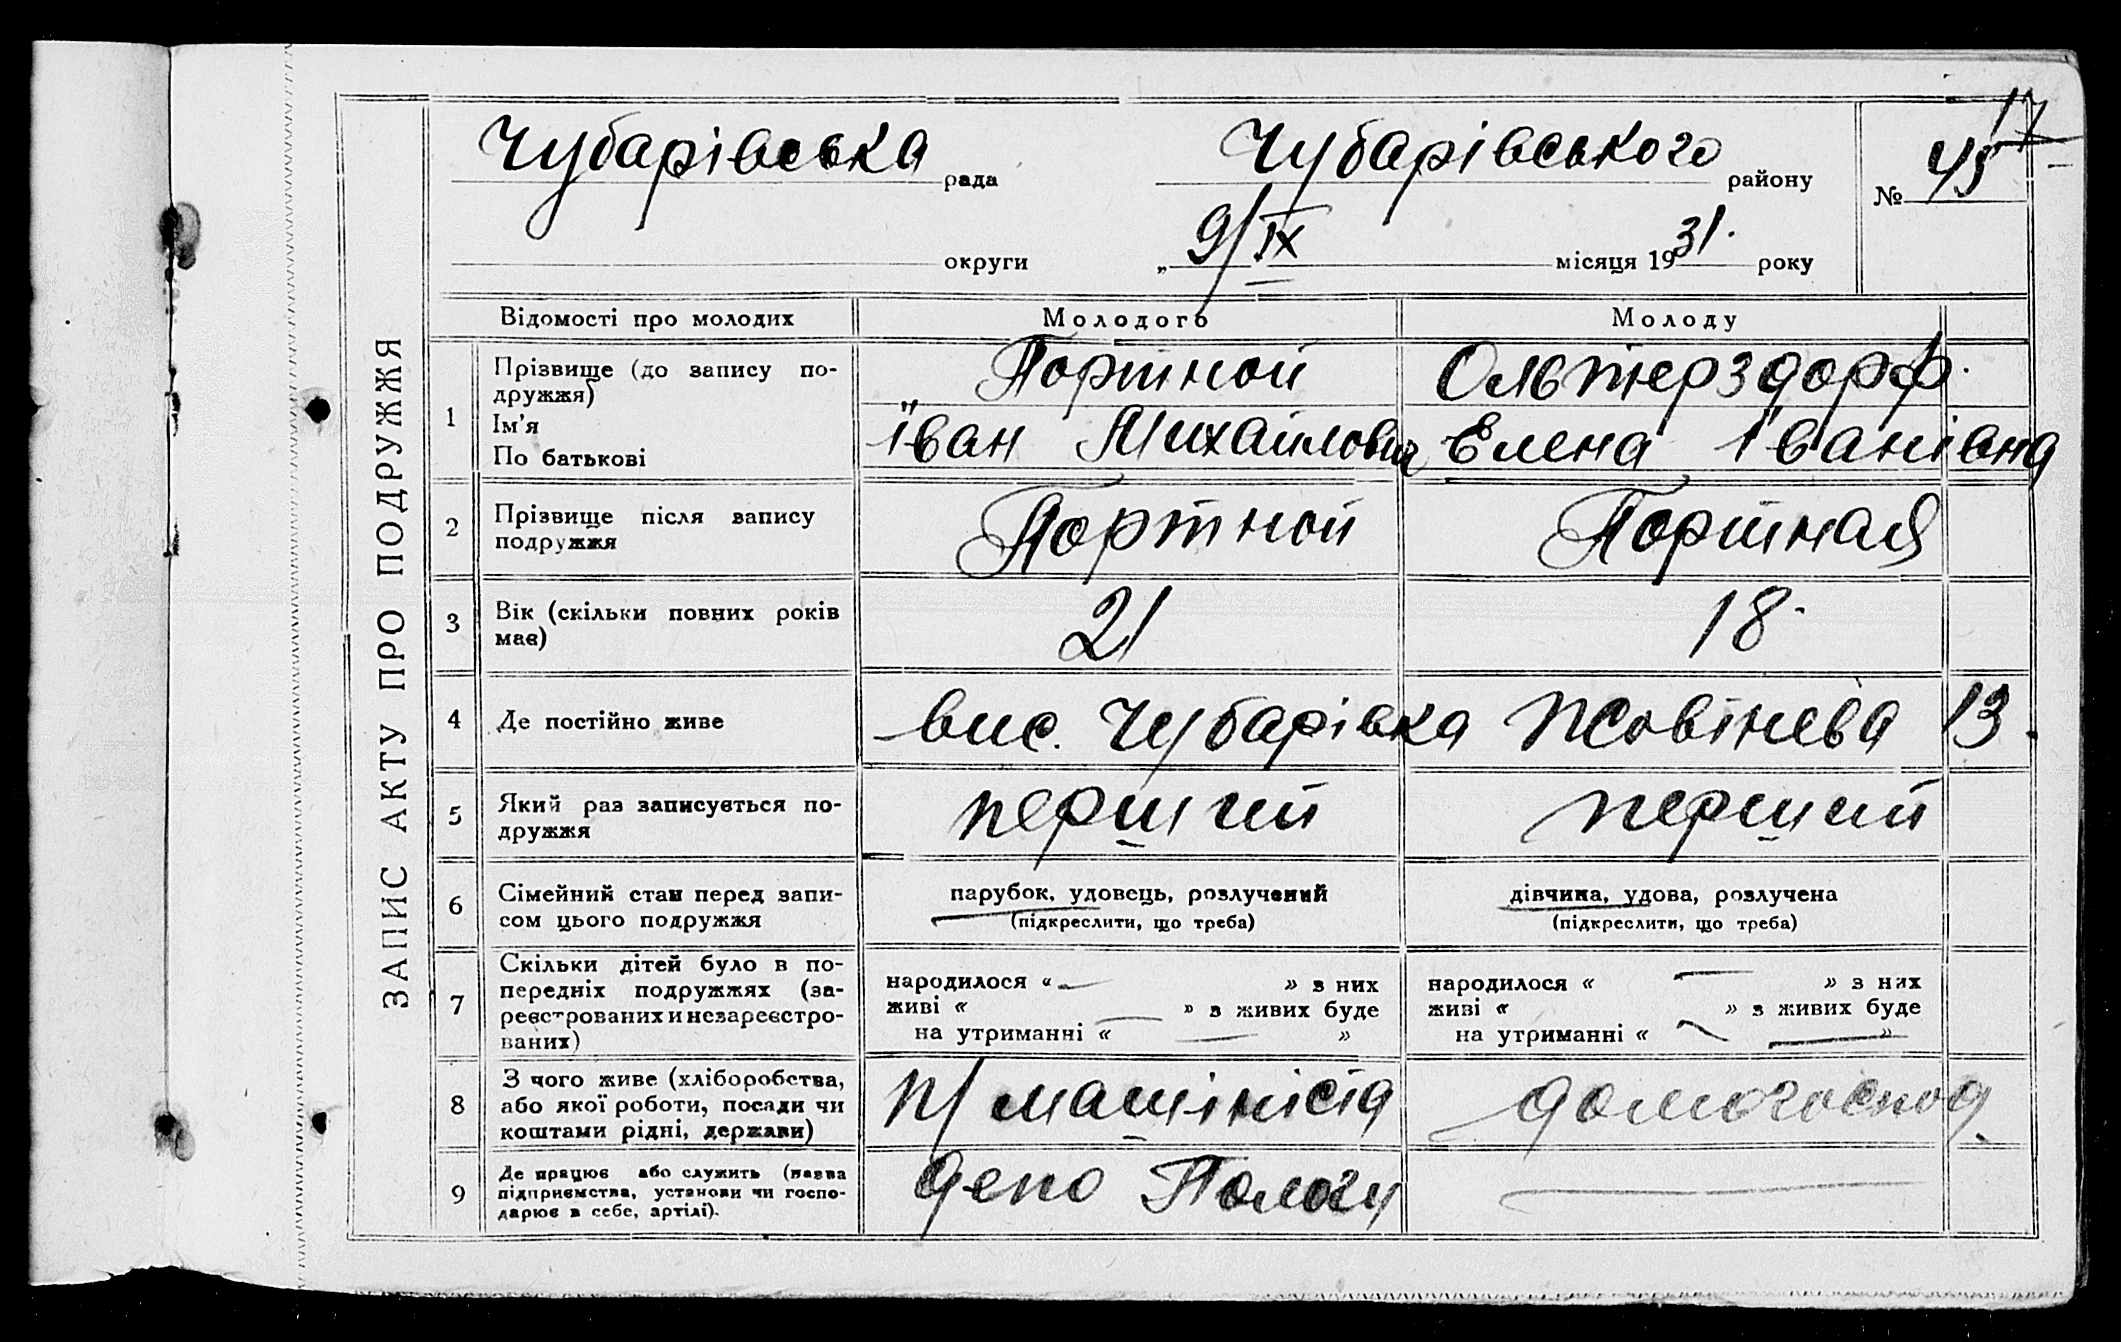 17
Чубарівська рада Чубарівського району № 45
округи „ 9/IX місяця 1931. року
ЗАПИС АКТУ ПРО ПОДРУЖЖЯ
Відомості про молодих Молодого Молоду
1 Прізвище (до запису по-
дружжя)
Ім'я
По батькові
Портной Ольтерздорф.
Іван Михайлович Елена Іванівна
2 Прізвище після запису
подружжя
Портной Портная
3 Вік (скільки повних років
має)
21 18.
4 Де постійно живе вис. Чубарівка Жовтнева 13.
5 Який раз записується по-
дружжя
перший перший
6 Сімейний стан перед запи-
сом цього подружжя
парубок, удовець, розлучений
(підкреслити, що треба)
дівчина, удова, розлучена
(підкреслити, що треба)
7 Скільки дітей було в по-
передніх подружжях (за-
реєстрованих и незареєстро-
ваних)
народилося « — » з них
живі « — » з живих буде
на утриманні « — »
народилося « — » з них
живі « » з живих буде
на утриманні « — »
8 З чого живе (хліборобства,
або якої роботи, посади чи
коштами рідні, держави)
п/машініста домогоспод.
9 Де працює або служить (назва
підприємства, установи чи госпо-
дарює в себе, артілі).
депо Пологи —